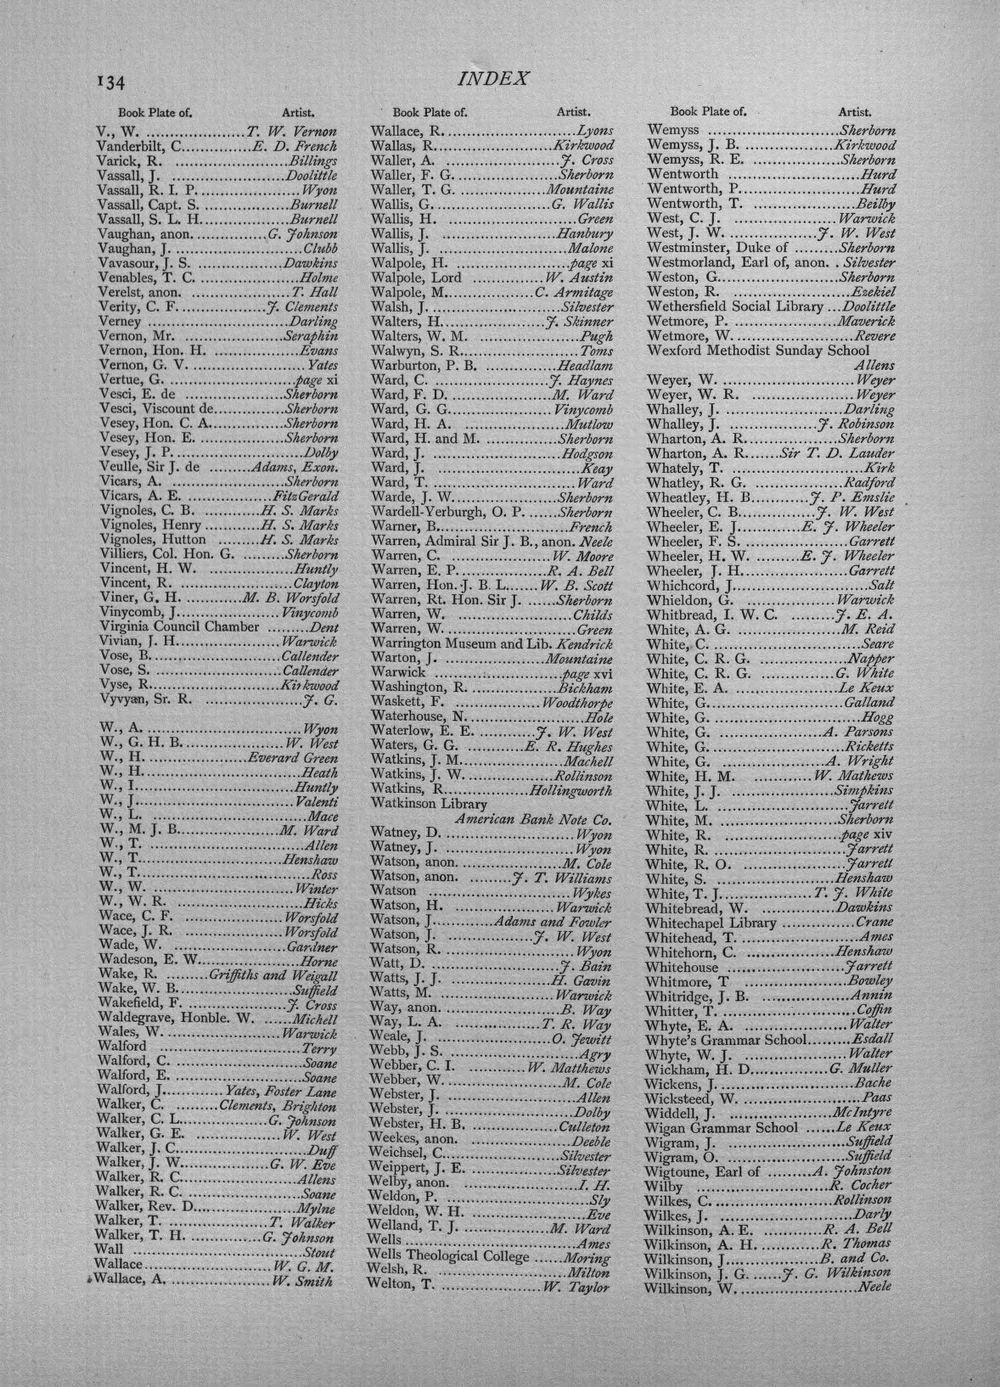 134
INDEX
Book Plate of. Artist.
V., W. ..................... T. W. Vernon
Vanderbilt, C. ............. E. D. French
Varick, R. ..................... Billings
Vassall, J. ..................... Doolittle
Vassall, R. I. P. ..................... Wyon
Vassall, Capt. S. ..................... Burnell
Vassall, S. L. H. ..................... Burnell
Vaughan, anon. ............. G. Johnson
Vaughan, J. ..................... Clubb
Vavasour, J. S. ..................... Dawkins
Venables, T. C. ..................... Holme
Verelst, anon. ..................... T. Hall
Verity, C. F. ............. J. Clements
Verney ..................... Darling
Vernon, Mr. ..................... Seraphin
Vernon, Hon. H. ............. Evans
Vernon, G. V. ..................... Yates
Vertue, G. ..................... page xi
Vesci, E. de ............. Sherborn
Vesci, Viscount de ............. Sherborn
Vesey, Hon. C. A. ............. Sherborn
Vesey, Hon. E. ............. Sherborn
Vesey, J. P. ..................... Dolby
Veulle, Sir J. de ......... Adams, Exon.
Vicars, A. ............. Sherborn
Vicars, A. E. ............. FitzGerald
Vignoles, C. B. ............. H. S. Marks
Vignoles, Henry ............. H. S. Marks
Vignoles, Hutton ......... H. S. Marks
Villiers, Col. Hon. G. ......... Sherborn
Vincent, H. W. ............. Huntly
Vincent, R. ............. Clayton
Viner, G. H. ............. M. B. Worsfold
Vinycomb, J. ............. Vinycomb
Virginia Council Chamber ......... Dent
Vivian, J. H. ............. Warwick
Vose, B. ............. Callender
Vose, S. ............. Callender
Vyse, R. ............. Kirkwood
Vyvyan, Sr. R. ............. J. G.
W., A. ..................... Wyon
W., G. H. B. ............. W. West
W., H. ............. Everard Green
W., H. ..................... Heath
W., I. ..................... Huntly
W., J. ..................... Valenti
W., L. ..................... Mace
W., M. J. B. ............. M. Ward
W., T. ..................... Allen
W., T. ..................... Henshaw
W., T. ..................... Ross
W., W. ..................... Winter
W., W. R. ..................... Hicks
Wace, C. F. ............. Worsfold
Wace, J. R. ............. Worsfold
Wade, W. ............. Gardner
Wadeson, E. W. ............. Horne
Wake, R. ......... Griffiths and Weigall
Wake, W. B. ............. Suffield
Wakefield, F. ............. J. Cross
Waldegrave, Honble. W. ...... Michell
Wales, W. ............. Warwick
Walford ............. Terry
Walford, C. ............. Soane
Walford, E. ............. Soane
Walford, J. ............. Yates, Foster Lane
Walker, C. ......... Clements, Brighton
Walker, C. L. ............. G. Johnson
Walker, G. E. ............. W. West
Walker, J. C. ............. Duff
Walker, J. W. ............. G. W. Eve
Walker, R. C. ............. Allens
Walker, R. C. ............. Soane
Walker, Rev. D. ............. Mylne
Walker, T. ............. T. Walker
Walker, T. H. ............. G. Johnson
Wall ............. Stout
Wallace ............. W. G. M.
Wallace, A. ............. W. Smith
Book Plate of. Artist.
Wallace, R. ............. Lyons
Wallas, R. ............. Kirkwood
Waller, A. ............. J. Cross
Waller, F. G. ............. Sherborn
Waller, T. G. ............. Mountaine
Wallis, G. ............. G. Wallis
Wallis, H. ............. Green
Wallis, J. ............. Hanbury
Wallis, J. ............. Malone
Walpole, H. ............. page xi
Walpole, Lord ............. W. Austin
Walpole, M. ............. C. Armitage
Walsh, J. ............. Silvester
Walters, H. ............. J. Skinner
Walters, W. M. ............. Pugh
Walwyn, S. R. ............. Toms
Warburton, P. B. ............. Headlam
Ward, C. ............. J. Haynes
Ward, F. D. ............. M. Ward
Ward, G. G. ............. Vinycomb
Ward, H. A. ............. Mutlow
Ward, H. and M. ............. Sherborn
Ward, J. ............. Hodgson
Ward, J. ............. Keay
Ward, T. ............. Ward
Warde, J. W. ............. Sherborn
Wardell-Yerburgh, O. P. ...... Sherborn
Warner, B. ............. French
Warren, Admiral Sir J. B., anon. Neele
Warren, C. ............. W. Moore
Warren, E. P. ............. R. A. Bell
Warren, Hon. J. B. L. ...... W. B. Scott
Warren, Rt. Hon. Sir J. ...... Sherborn
Warren, W. ............. Childs
Warren, W. ............. Green
Warrington Museum and Lib. Kendrick
Warton, J. ............. Mountaine
Warwick ............. page xvi
Washington, R. ............. Bickham
Waskett, F. ............. Woodthorpe
Waterhouse, N. ............. Hole
Waterlow, E. E. ............. J. W. West
Waters, G. G. ............. E. R. Hughes
Watkins, J. M. ............. Machell
Watkins, J. W. ............. Rollinson
Watkins, R. ............. Hollingworth
Watkinson Library
American Bank Note Co.
Watney, D. ............. Wyon
Watney, J. ............. Wyon
Watson, anon. ............. M. Cole
Watson, anon. ......... J. T. Williams
Watson ............. Wykes
Watson, H. ............. Warwick
Watson, J. ............. Adams and Fowler
Watson, J. ............. J. W. West
Watson, R. ............. Wyon
Watt, D. ............. J. Bain
Watts, J. J. ............. H. Gavin
Watts, M. ............. Warwick
Way, anon. ............. B. Way
Way, L. A. ............. T. R. Way
Weale, J. ............. O. Jewitt
Webb, J. S. ............. Agry
Webber, C. I. ............. W. Matthews
Webber, W. ............. M. Cole
Webster, J. ............. Allen
Webster, J. ............. Dolby
Webster, H. B. ............. Culleton
Weekes, anon. ............. Deeble
Weichsel, C. ............. Silvester
Weippert, J. E. ............. Silvester
Welby, anon. ............. I. H.
Weldon, P. ............. Sly
Weldon, W. H. ............. Eve
Welland, T. J. ............. M. Ward
Wells ............. Ames
Wells Theological College ...... Moring
Welsh, R. ............. Milton
Welton, T. ............. W. Taylor
Book Plate of. Artist.
Wemyss ............. Sherborn
Wemyss, J. B. ............. Kirkwood
Wemyss, R. E. ............. Sherborn
Wentworth ............. Hurd
Wentworth, P. ............. Hurd
Wentworth, T. ............. Beilby
West, C. J. ............. Warwick
West, J. W. ............. J. W. West
Westminster, Duke of ......... Sherborn
Westmorland, Earl of, anon. . . Silvester
Weston, G. ............. Sherborn
Weston, R. ............. Ezekiel
Wethersfield Social Library ... Doolittle
Wetmore, P. ............. Maverick
Wetmore, W. ............. Revere
Wexford Methodist Sunday School
Allens
Weyer, W. ............. Weyer
Weyer, W. R. ............. Weyer
Whalley, J. ............. Darling
Whalley, J. ............. J. Robinson
Wharton, A. R. ............. Sherborn
Wharton, A. R. ...... Sir T. D. Lauder
Whately, T. ............. Kirk
Whatley, R. G. ............. Radford
Wheatley, H. B. ............. J. P. Emslie
Wheeler, C. B. ............. J. W. West
Wheeler, E. J. ............. E. J. Wheeler
Wheeler, F. S. ............. Garrett
Wheeler, H. W. ............. E. J. Wheeler
Wheeler, J. H. ............. Garrett
Whichcord, J. ............. Salt
Whieldon, G. ............. Warwick
Whitbread, I. W. C. ......... J. E. A.
White, A. G. ............. M. Reid
White, C. ............. Seare
White, C. R. G. ............. Napper
White, C. R. G. ............. G. White
White, E. A. ............. Le Keux
White, G. ............. Galland
White, G. ............. Hogg
White, G. ............. A. Parsons
White, G. ............. Ricketts
White, G. ............. A. Wright
White, H. M. ............. W. Mathews
White, J. J. ............. Simpkins
White, L. ............. Jarrett
White, M. ............. Sherborn
White, R. ............. page xiv
White, R. ............. Jarrett
White, R. O. ............. Jarrett
White, S. ............. Henshaw
White, T. J. ............. T. J. White
Whitebread, W. ............. Dawkins
Whitechapel Library ............. Crane
Whitehead, T. ............. Ames
Whitehorn, C. ............. Henshaw
Whitehouse ............. Jarrett
Whitmore, T ............. Bowley
Whitridge, J. B. ............. Annin
Whitter, T. ............. Coffin
Whyte, E. A. ............. Walter
Whyte's Grammar School ......... Esdall
Whyte, W. J. ............. Walter
Wickham, H. D. ............. G. Muller
Wickens, J. ............. Bache
Wicksteed, W. ............. Paas
Widdell, J. ............. McIntyre
Wigan Grammar School ...... Le Keux
Wigram, J. ............. Suffield
Wigram, O. ............. Suffield
Wigtoune, Earl of ......... A. Johnston
Wilby ............. R. Cocher
Wilkes, C. ............. Rollinson
Wilkes, J. ............. Darly
Wilkinson, A. E. ............. R. A. Bell
Wilkinson, A. H. ............. R. Thomas
Wilkinson, J. ............. B. and Co.
Wilkinson, J. G. ...... J. G. Wilkinson
Wilkinson, W. ............. Neele